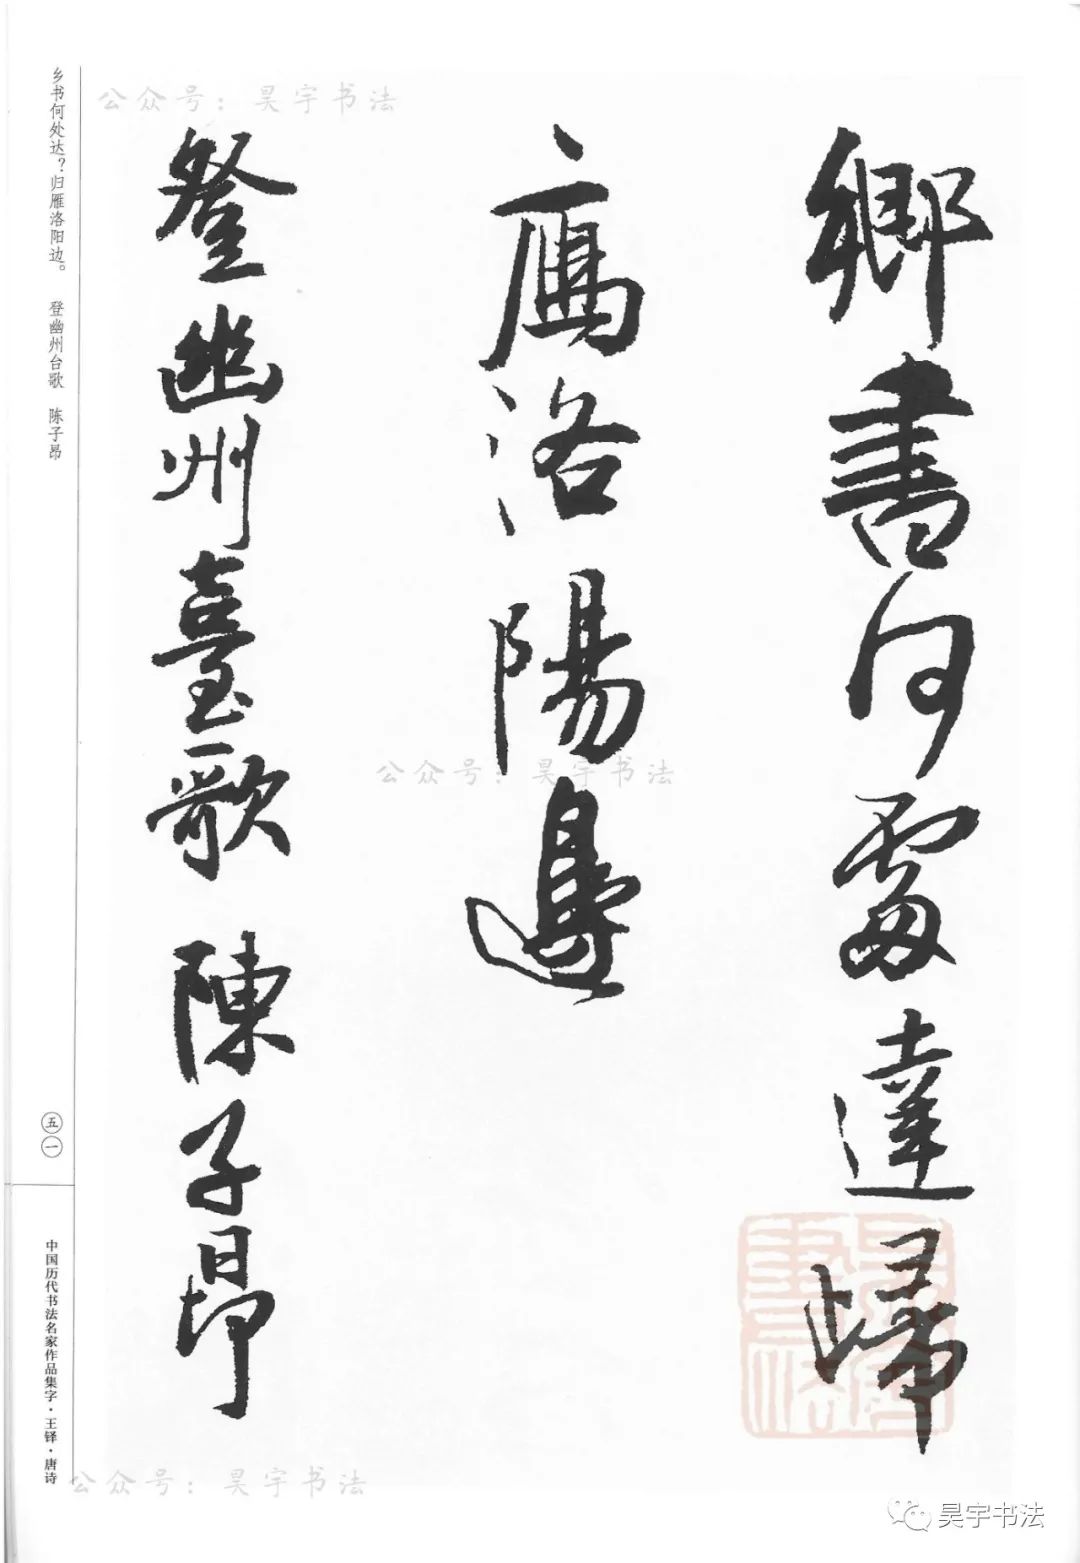 鄉書何處達歸
鴈洛陽邊
登幽州臺歌 陳子昂
乡书何处达？归雁洛阳边。 登幽州台歌 陈子昂
五一
中国历代书法名家作品集字·王铎·唐诗
公众号：昊宇书法
公众号：昊宇书法
公众号：昊宇书法
昊宇书法
昊宇書法